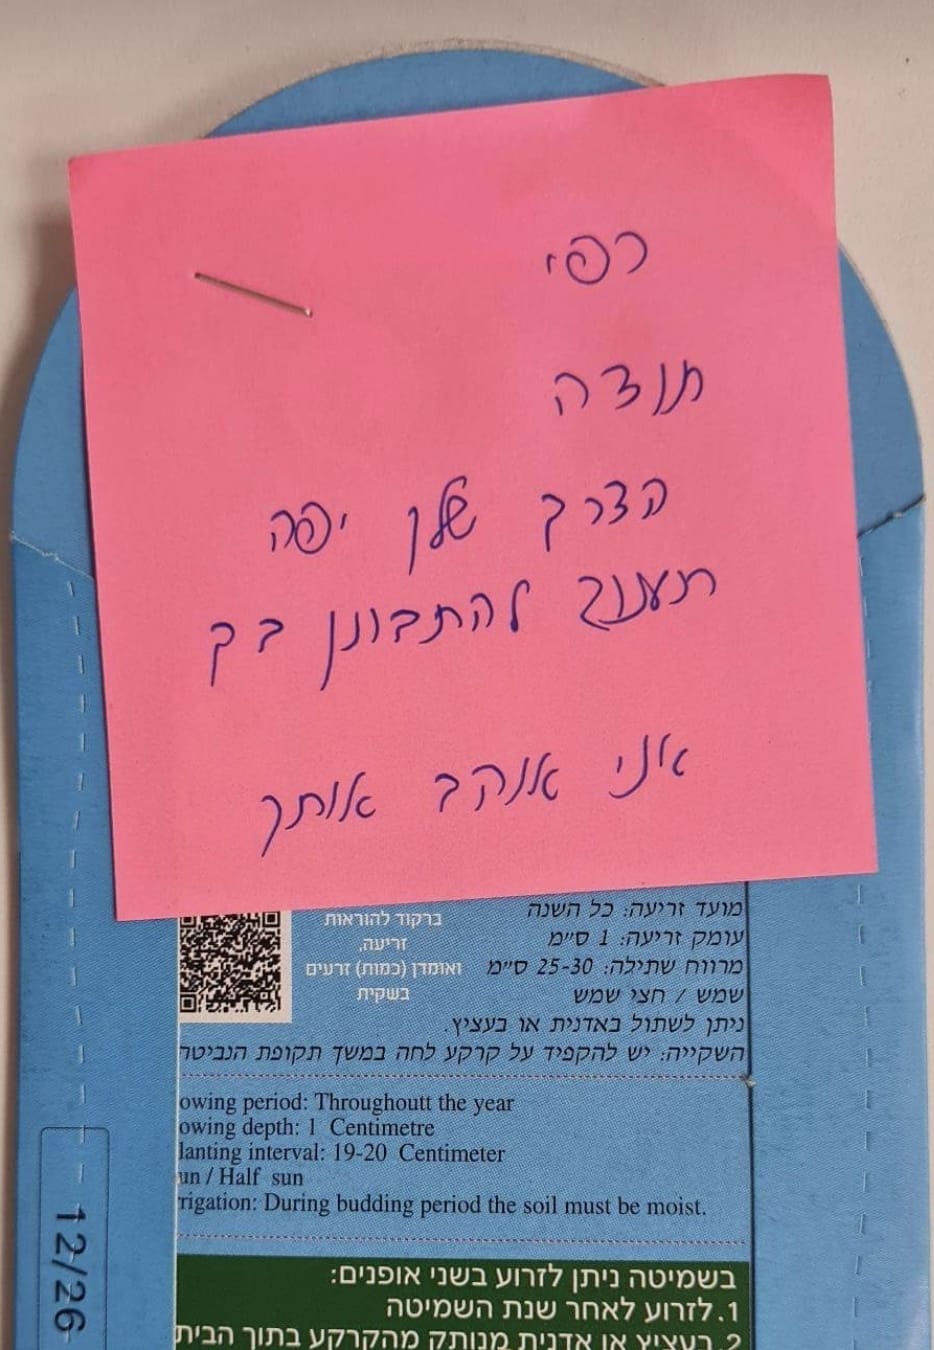 רפי
תודה
הדרך שלך יפה
תענוג להתבונן בך
אני אוהב אותך
ברקוד להוראות
זריעה,
ואומדן (כמות) זרעים
בשקית
מועד זריעה: כל השנה
עומק זריעה: 1 ס״מ
מרווח שתילה: 25-30 ס״מ
שמש / חצי שמש
ניתן לשתול באדנית או בעציץ.
השקייה: יש להקפיד על קרקע לחה במשך תקופת הנביטה
owing period: Throughoutt the year
owing depth: 1 Centimetre
lanting interval: 19-20 Centimeter
un / Half sun
rrigation: During budding period the soil must be moist.
בשמיטה ניתן לזרוע בשני אופנים:
1. לזרוע לאחר שנת השמיטה
2. בעציץ או אדנית מנותק מהקרקע בתוך הבית
12/26